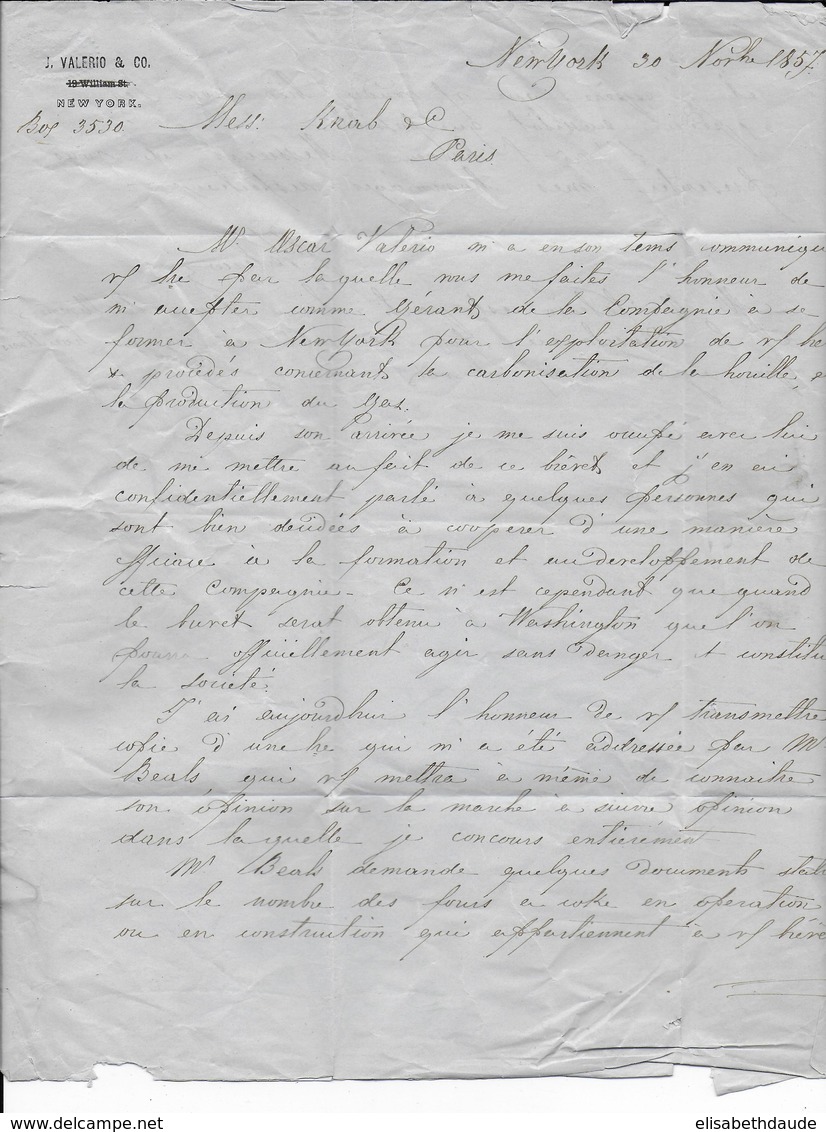 J. VALERIO & CO.
19 William St.
NEW YORK.
New York 30 Novbre 1857
Box 3530
Mess: Knab & Cº
Paris
Mr Oscar Valerio m'a en son tems communiqu
vs lre par laquelle vous me faites l'honneur de
m'accepter comme Gérant de la Compagnie à se
former à New York pour l'exploitation de vs
procédés concernant la carbonisation de la houille, e
la production du Gaz.
Depuis son arrivée je me suis occupé avec lui
de me mettre au fait de ce brévet et j'en ai
confidentiellement parlé à quelques personnes qui
sont bien décidées à coopérer d'une manière
efficace à la formation et au developpement de
cette Compagnie - Ce n'est cependant que quand
le brevet serat obtenu à Washington que l'on
pourra officiellement agir sans danger et constitu
la société.
J'ai aujourdhui l'honneur de vs transmettre
copie d'une lre qui m'a été addressée par Mr
Beals qui vs mettra à même de connaitre
son opinion sur la marche à suivre opinion
dans laquelle je concours entièrement
Mr Beals demande quelques documents stat
sur le nombre des fours a coke en operation
ou en construction qui appartiennent à vs bréve
elisabethdaude